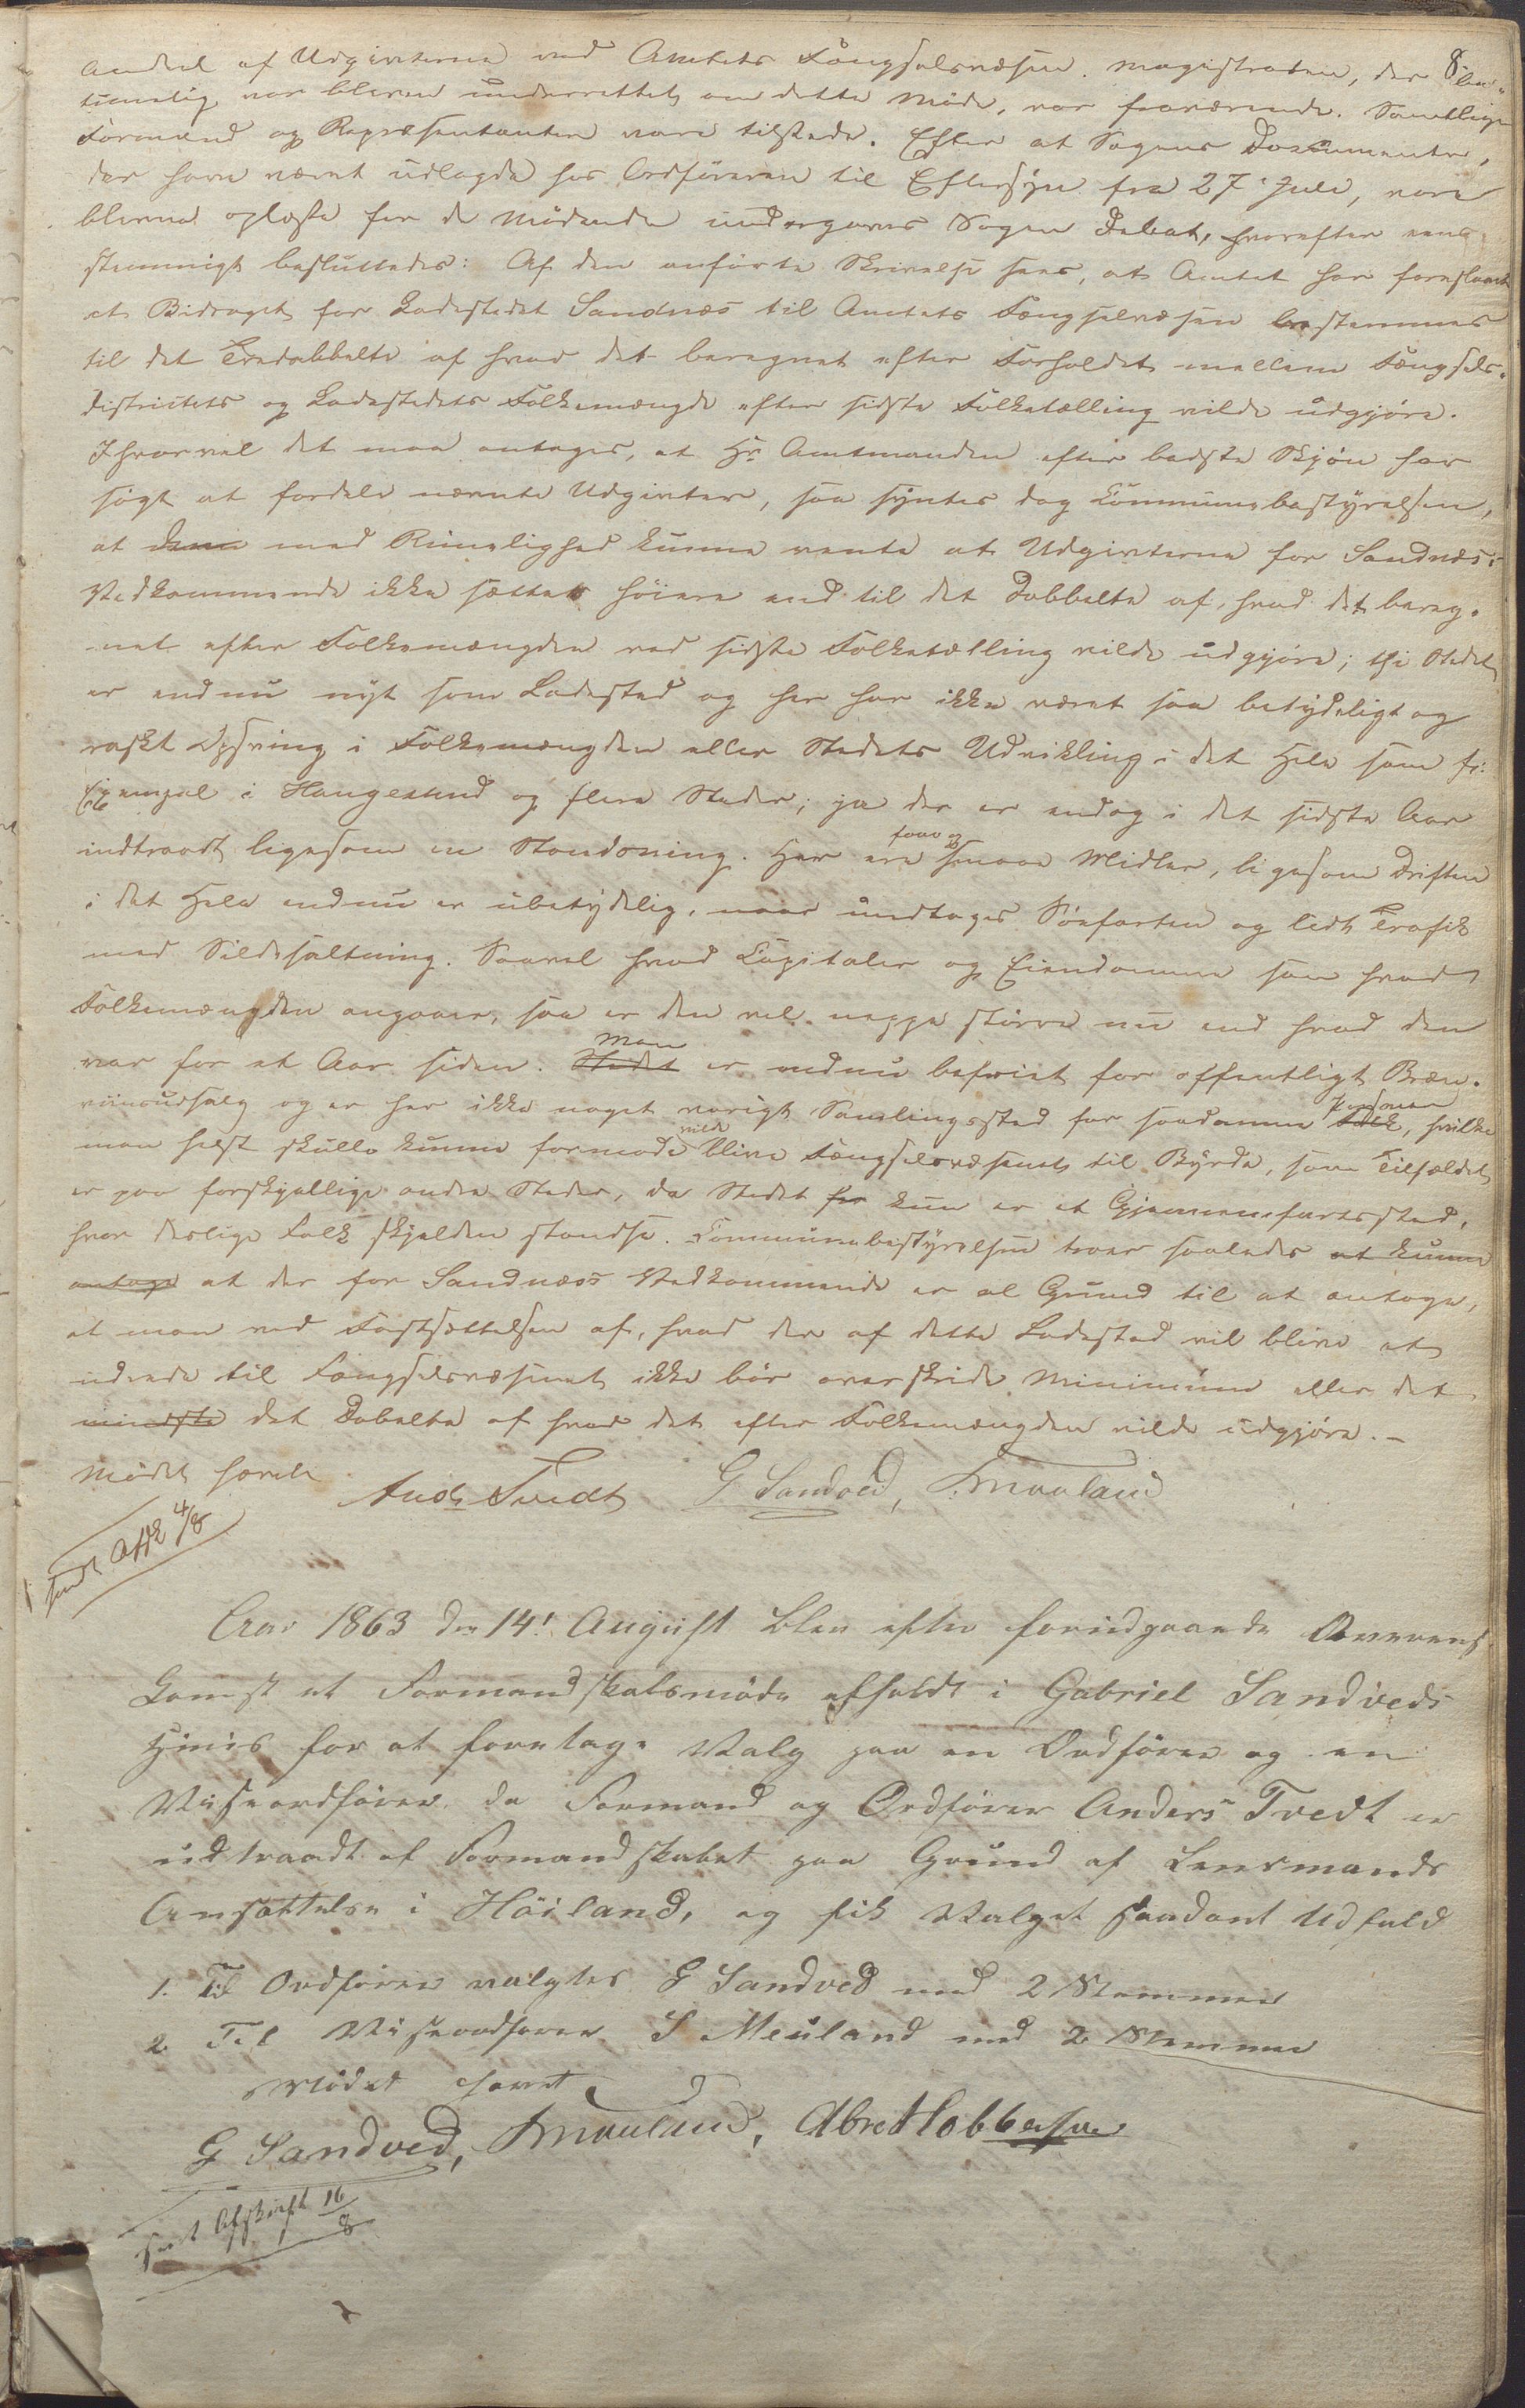 8
Andeel af Udgivterne ved Amtets Fængselsvæsen. Magistraten, der 
timelig var bleven underrettet om dette Møde, var fraværende. Samtlige
Formænd og Repræsentanter vare tilstede. Efter at Sagens Documenter,
der have været udlagde hos Ordføreren til Eftersyn fra 27 Juli, vare
blevne oplæste for de Mødende undergaves Sagen Debat, hvorefter eens-
stemmigt besluttedes: Af den anførte Skrivelse sees, at Amtet har foreslaaet
at Bidraget for Ladestedet Sandnæs til Amtets Fængselvæsen bestemmes
til det Tredobbelte af hvad det beregnet efter Forholdet mellem Fængsels-
districtets og Ladestedets Folkemængde efter sidste Folketælling vilde udgjøre.
Ihvorvel det maa antages, at Hr Amtmanden efter bedste Skjøn har
søgt at fordele nævnte Udgivter, saa syntes dog Communebestyrelsen,
at den med Rimelighed kunne vente at Udgivterne for Sandnæs's
Vedkommende ikke sættes høiere end til det Dobbelte af, hvad det bereg-
net efter Folkemængden ved sidste Folketælling vilde udgjøre; thi Stedet
er endnu nyt som Ladested og her har ikke været saa betydeligt og
raskt Opsving i Folkemængden eller Stedets Udvikling i det Hele som f:
Exempel i Haugesund og flere Steder; ja der er endog i det sidste Aar
indtraadt ligesom en Standsning. Her ere faae og smaae Midler, ligesom Driften
i det Hele endnu er ubetydelig, naar undtages Søefarten og lidt Trafik
med Sildesaltning. Saavel hvad Capitaler og Eiendomme som hvad
Folkemængden angaaer, saa er den vel neppe større nu end hvad den
var for et Aar siden. Stedet Man er endnu befriet for offentligt Bræn-
viinsudsalg og er her ikke noget varigt Samlingssted for saadanne Folk Personer, hvilke
man helst skulle kunne formode vilde blive Fængselsvæsenet til Byrde, som Tilfældet
er paa forskjellige andre Steder, da Stedet før kun er et Gjennemfartssted,
hvor deslige Folk skjelden standse. Communebestyrelsen troer saaledes at kunne
antage at der for Sandnæs's Vedkommende er al Grund til at antage,
at man ved Fastsættelsen af, hvad der af dette Ladested vil blive at
udrede til Fængselsvæsenet ikke bør overskride Minimum eller det
mindste det Dobelte af hvad det efter Folkemængden vilde udgjøre. –
Mødet hævet
Ands Tvedt G Sandved, S Mauland
sendt Afsk 4/8
Aar 1863 den 14! August blev efter foriudgaaende Overens-
komst et Formandskabsmøde afholdt i Gabriel Sandveds
Huus for at foretage Valg paa en Ordfører og en
Viseordfører, da Formand og Ordfører Anders Tvedt er
udtraadt af Formandskabet paa Grund af Lensmands
Ansættelse i Höiland, og fik Valget saadant Udfald
1. Til Ordfører valgtes G Sandved med 2 Stemmer
2 Til Viseordfører S Mauland med 2 Stemmer
Mødet hævet
G Sandved, S Mauland,
sendt Afskrift 16/8